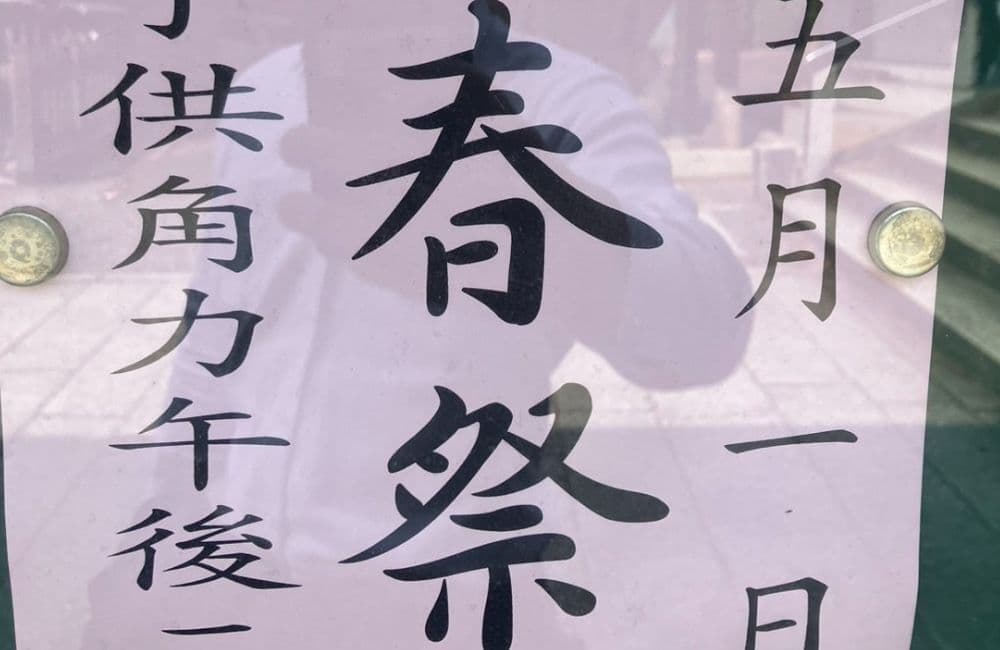 五月一日
春祭
子供角力午後一